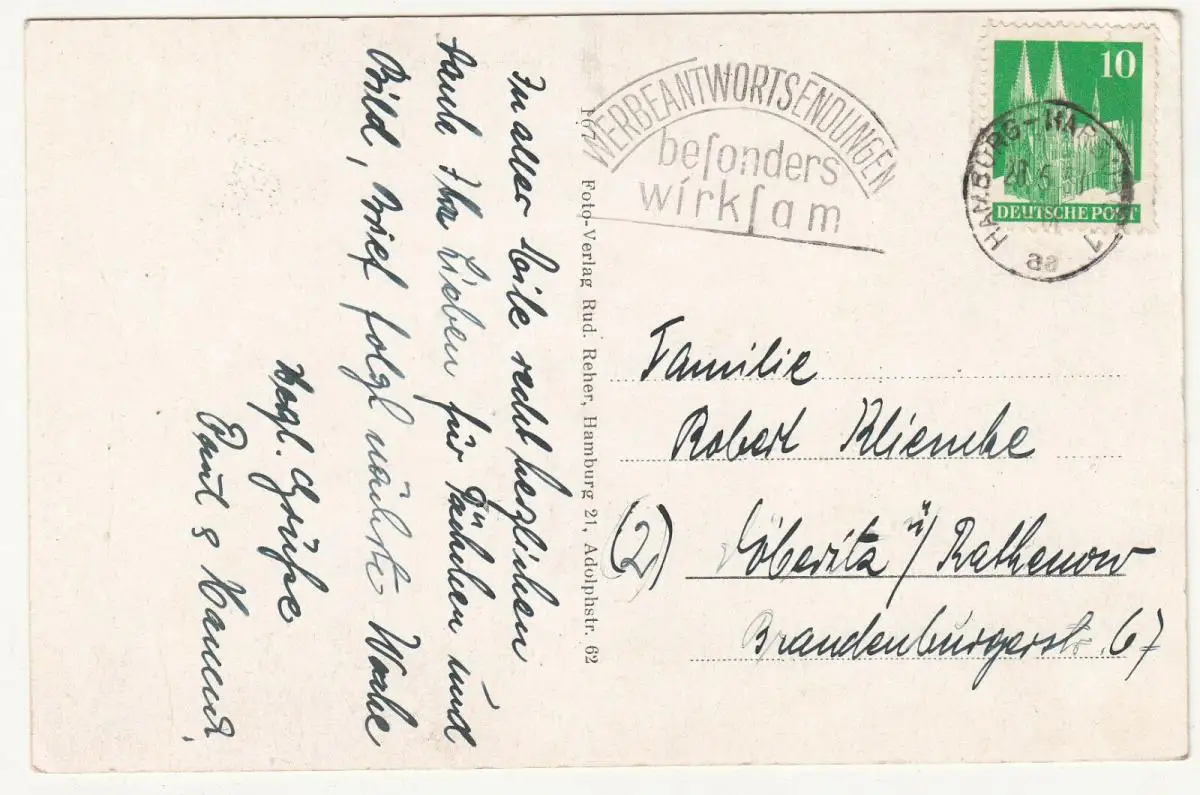 In aller Eile recht herzlichen
Dank Ihr Lieben für Päckchen und
Bild, Brief folgt nächste Woche
Herzl. Grüße
Paul &
167 Foto-Verlag Rud. Reher, Hamburg 21, Adolphstr. 62
WERBEANTWORTSENDUNGEN
beſonders
wirkſam
10
DEUTSCHE POST
HAMBURG-HARBURG 1
aa
Familie
Robert Kliemke
(2) Döberitz ü/ Rathenow
Brandenburgerstr. 67